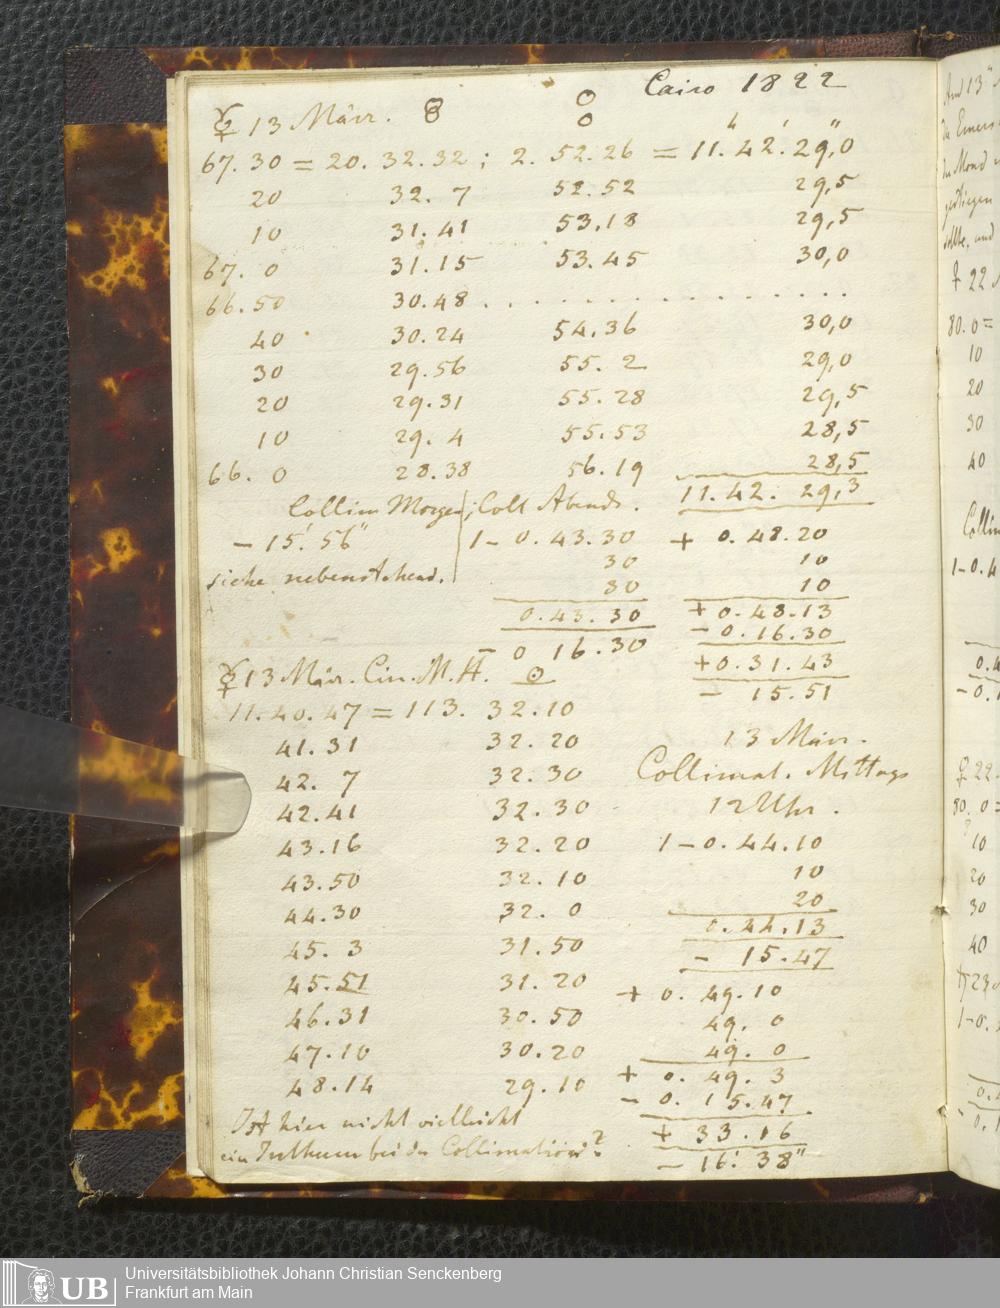 Cairo 1822
☿ 13 März.
67.30 = 20.32.32; 2.52.26 = 11.42.29,0
20 32.7 52.52 29,5
10 31.41 53.18 29,5
67.0 31.15 53.45 30,0
66.50 30.48 . . . . . . . . . . . . . . .
40 30.24 54.36 30,0
30 29.56 55.2 29,0
20 29.31 55.28 29,5
10 29.4 55.53 28,5
66.0 28.38 56.19 28,5
11.42.29,3
Collim Morgen; Coll Abends.
– 15'.56"
siehe nebenstehend.
1 – 0.43.30
30
30
0.43.30
– 0 16.30
+ 0.48.20
10
10
+ 0.48.13
– 0.16.30
+ 0.31.43
– 15.51
☿ 13 März. Circ. M. H. ☉
11.40.47 = 113. 32.10
41.31 32.20
42.7 32.30
42.41 32.30
43.16 32.20
43.50 32.10
44.30 32.0
45.3 31.50
45.51 31.20
46.31 30.50
47.10 30.20
48.14 29.10
Ist hier nicht vielleicht
ein Irthum bei der Collimation?
13 März.
Collimat. Mittags
12 Uhr.
1 – 0.44.10
10
20
0.44.13
– 15.47
+ 0.49.10
49.0
49.0
+ 0.49.3
– 0.15.47
+ 33.16
– 16'.38"
♀ 22
80.0=
10
20
30
40
1–0.4
♀ 22.
80.0=
10
20
30
40
UB
Universitätsbibliothek Johann Christian Senckenberg
Frankfurt am Main